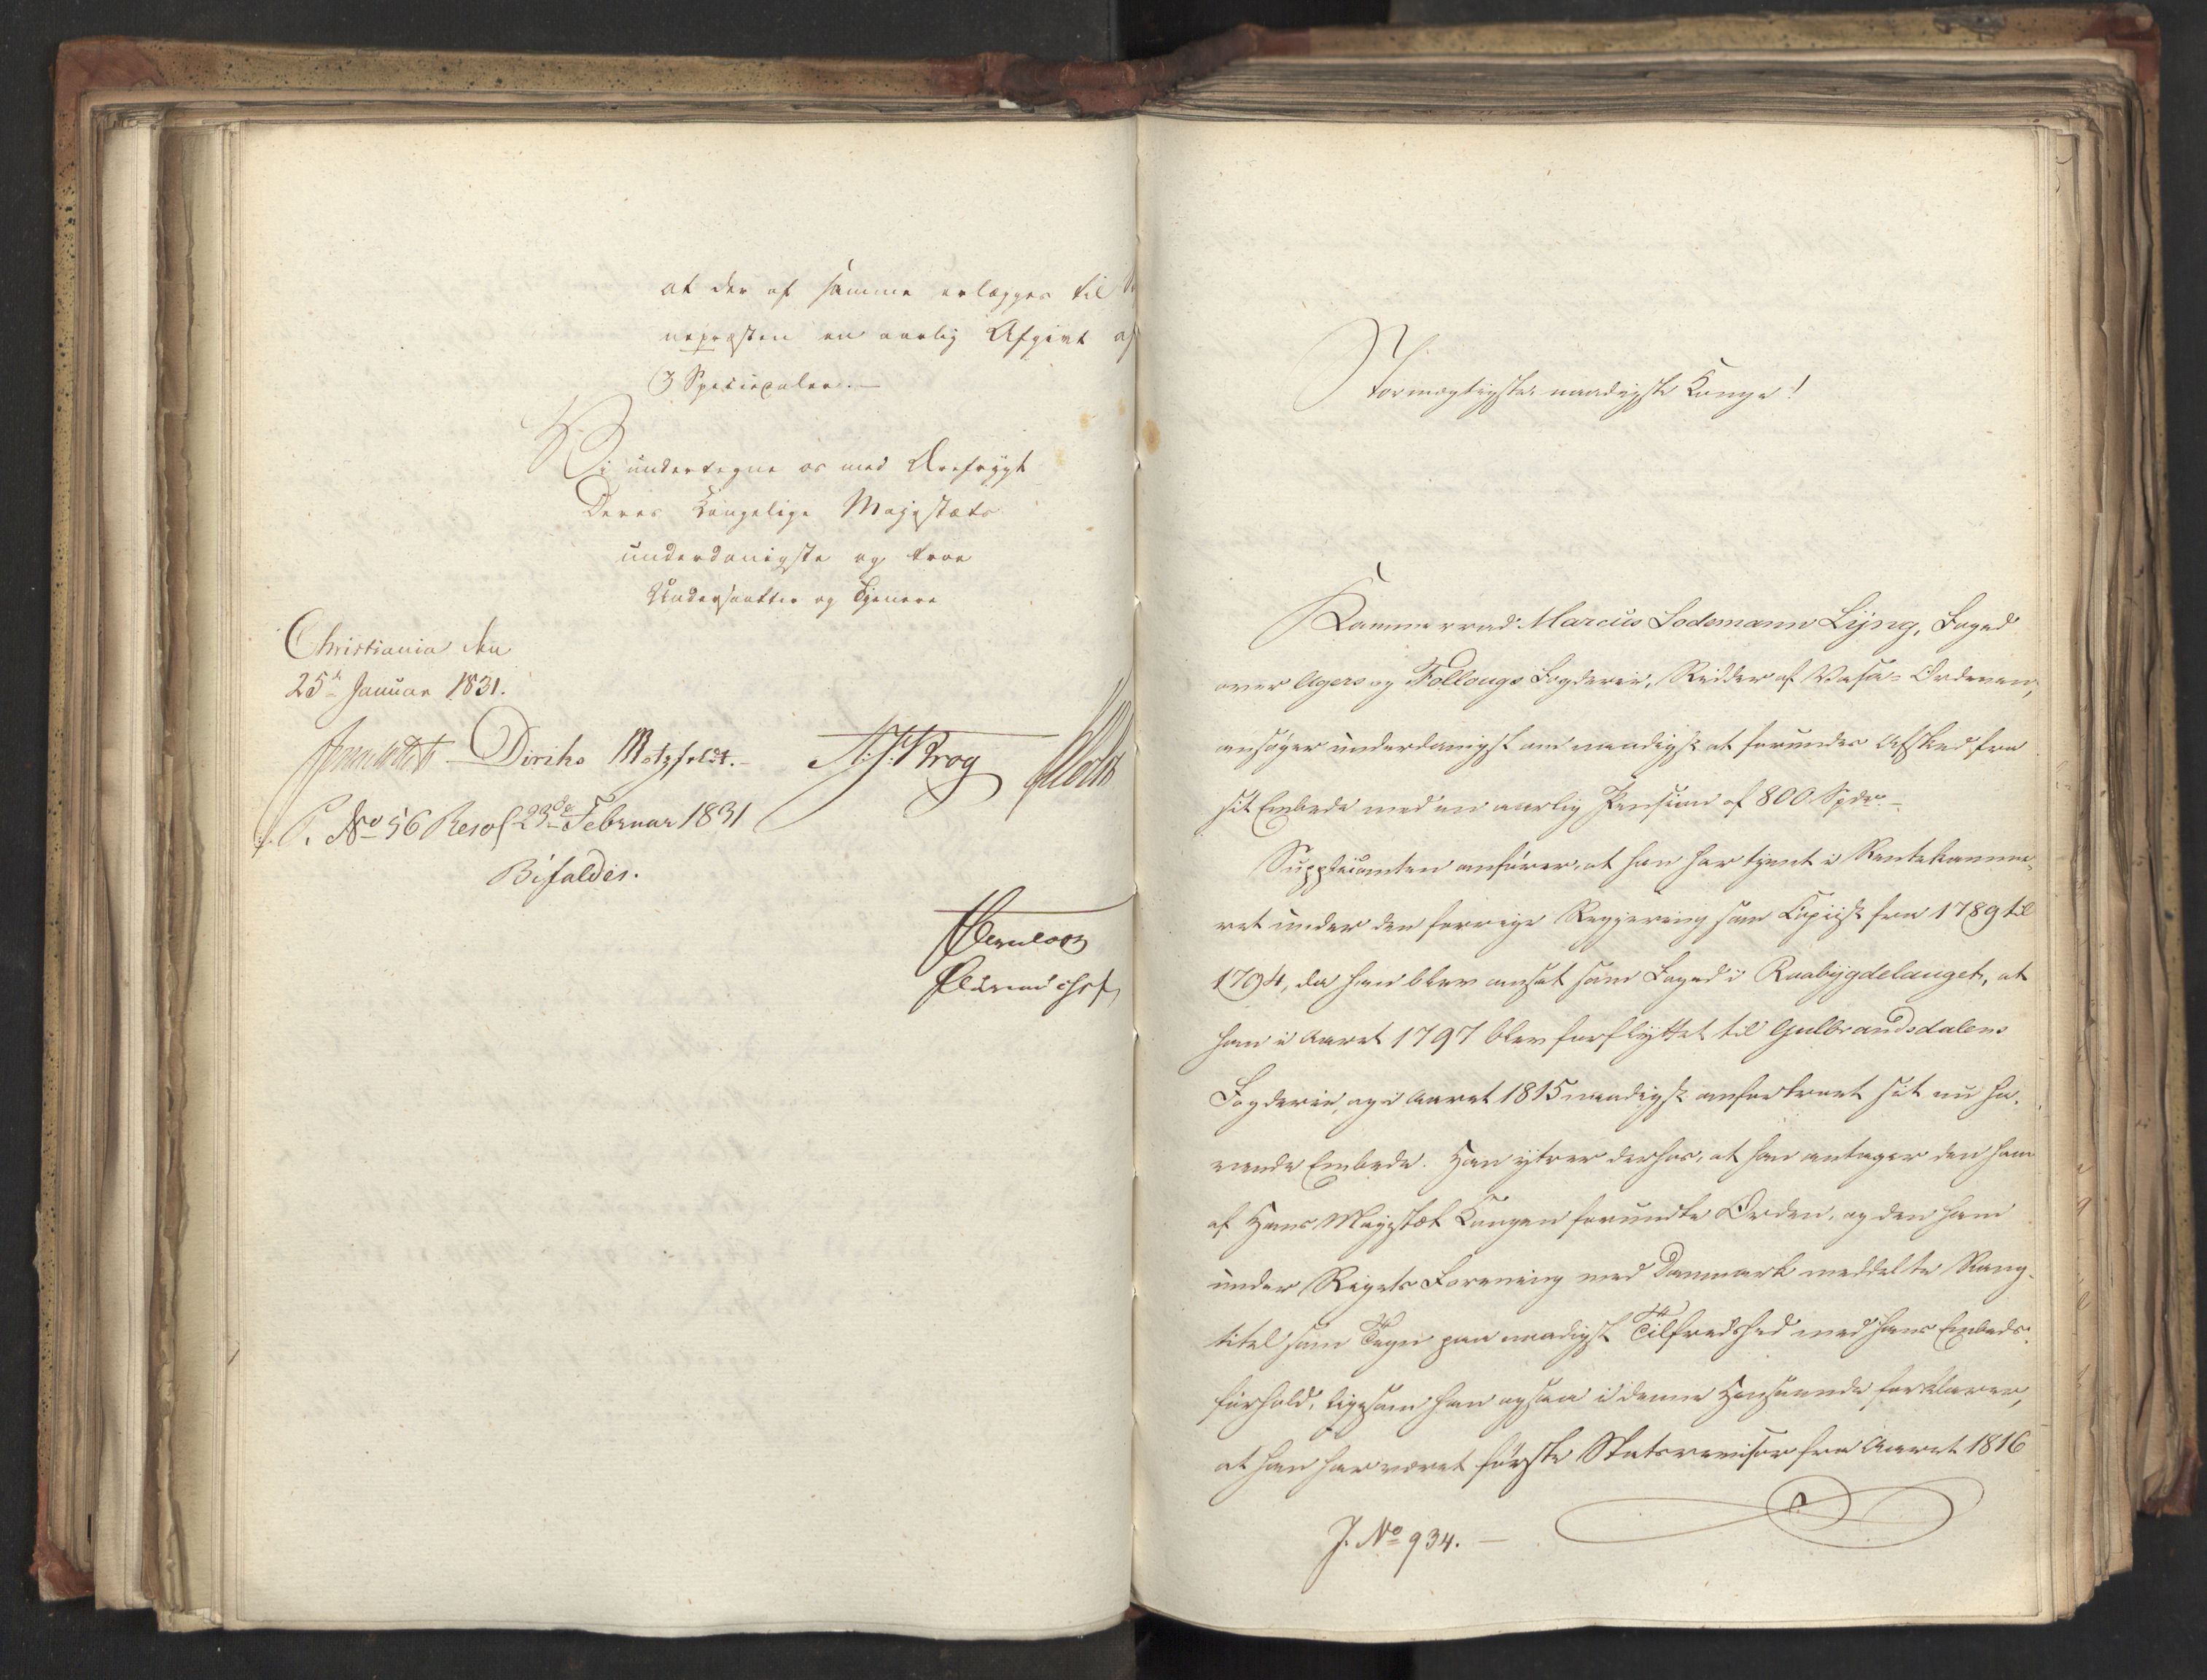 at der af samme erlægges til
nepræsten en aarlig Afgivt af
3 Speciedaler. —
Vi undertegne os med Ærefrygt
Deres Kongelige Majestæts
underdanigste og troe
Undersaatter og Tjenere
Christiania den
25de Januar 1831.
Diriks Motzfeldt. N. J. Krog
P. No 56 Resol 23de Februar 1831
Bifaldes.
Stormægtigste, naadigste Konge!
Kammerraad Marcus Sodemann Lyng, Foged
over Agers og Follougs Fogderie, Ridder af Vasa-Ordenen,
ansøger underdanigst om naadigst at forundes Afsked fra
sit Embede med en aarlig Pension af 800 Spdr. —
Supplicanten anfører, at han har tjent i Rentekamme-
ret under den forrige Regjering som Copiist fra 1789 til
1794, da han blev ansat som Foged i Raabygdelauget, at
han i Aaret 1797 blev forflyttet til Gulbrandsdalens
Fogderie, og i Aaret 1815 naadigst anfortroet sit nu ha-
vende Embede. Han yttrer derhos, at han antager den ham
af Hans Majestæt Kongen forundte Orden, og den ham
under Rigets Forening med Danmark meddelte Rang-
titel som Tegn paa naadigst Tilfredshed med hans Embeds-
forhold, ligesom han ogsaa i denne Henseende forklarer,
at han har været første Statsrevisor fra Aaret 1816
J. No 934. —